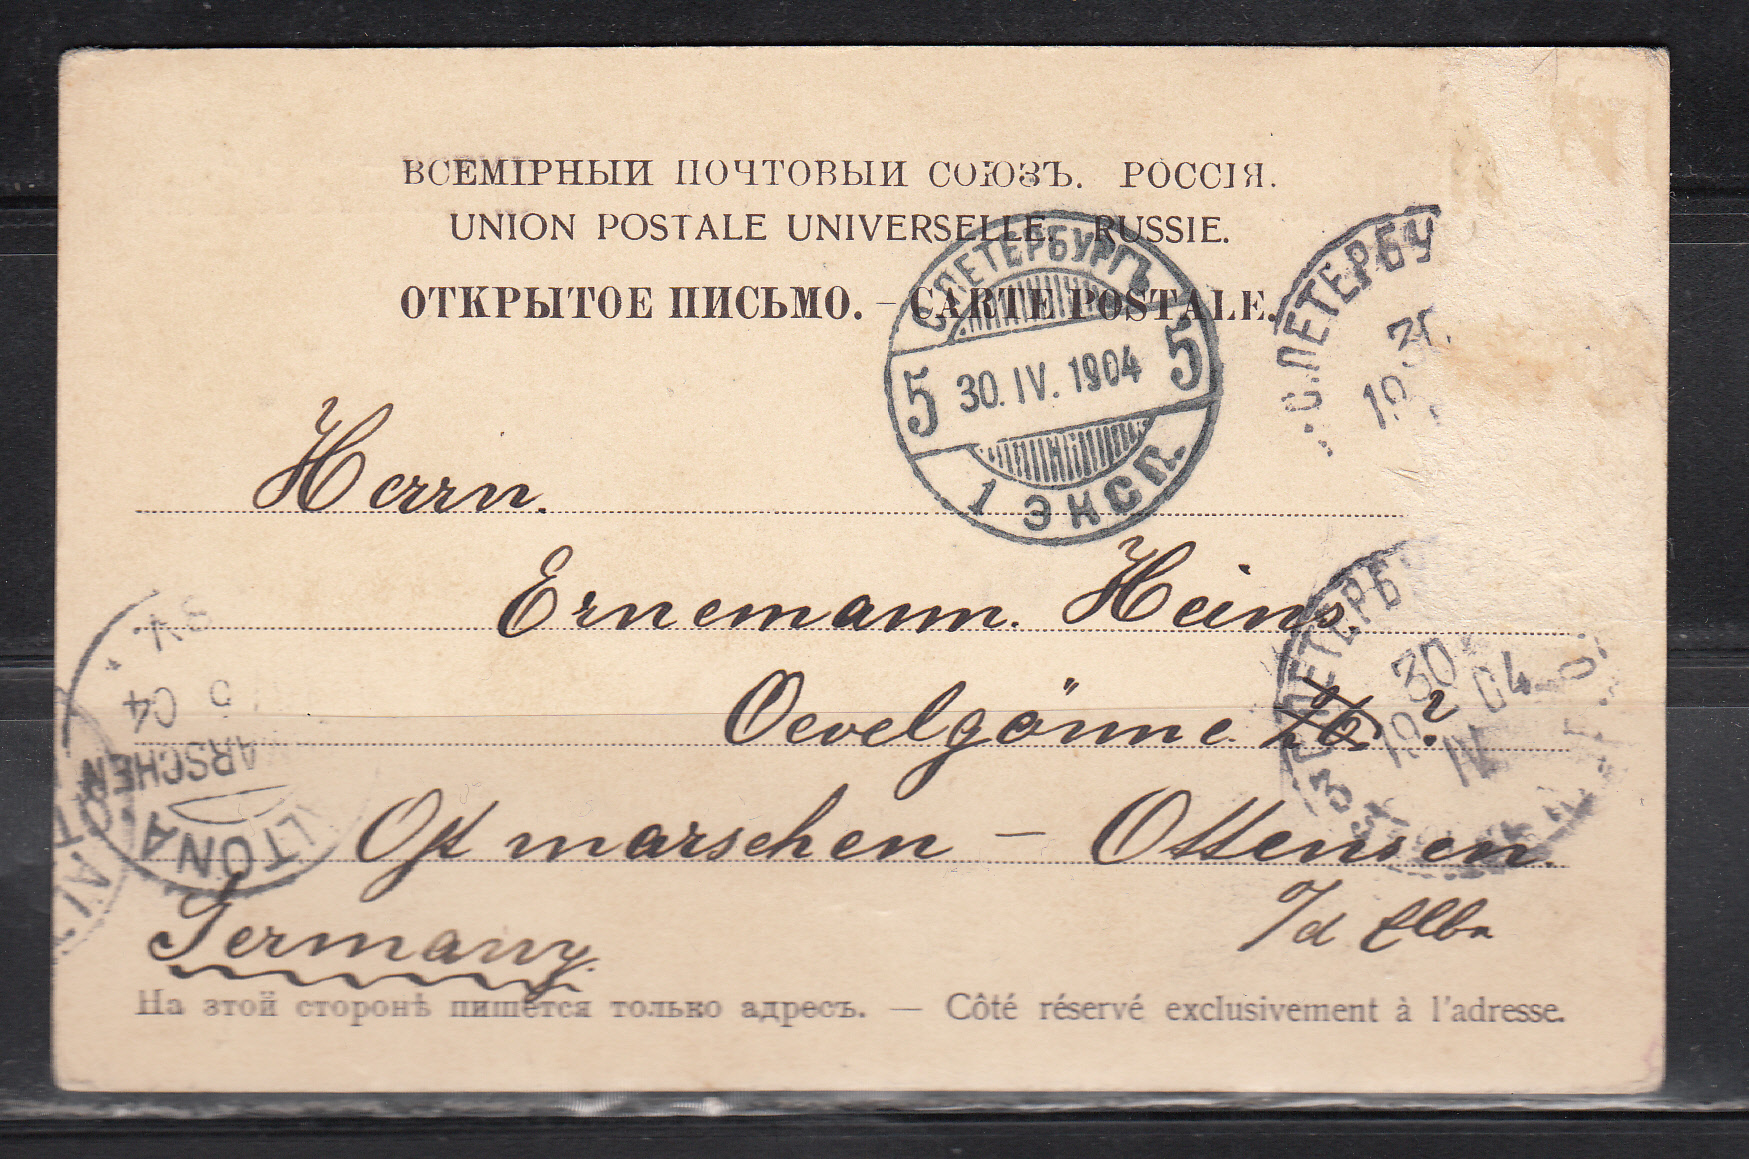 ВСЕМІРНЫЙ ПОЧТОВЫЙ СОЮЗЪ. РОССІЯ.
UNION POSTALE UNIVERSELLE. RUSSIE.
ОТКРЫТОЕ ПИСЬМО. – CARTE POSTALE.
С.ПЕТЕРБУРГЪ
5 30.IV.1904 5
1 ЭКСП.
С.ПЕТЕРБУ
30
19
Herrn.
Ernemann. Heins.
Oevelgönne
Ostmarschen – Ottensen.
Germany.
С.ПЕТЕРБУ
30
19 04
IV
3V.
5 04
ARSCHEN
LTONA
ALT
На этой сторонѣ пишется только адресъ. — Côté réservé exclusivement à l'adresse.